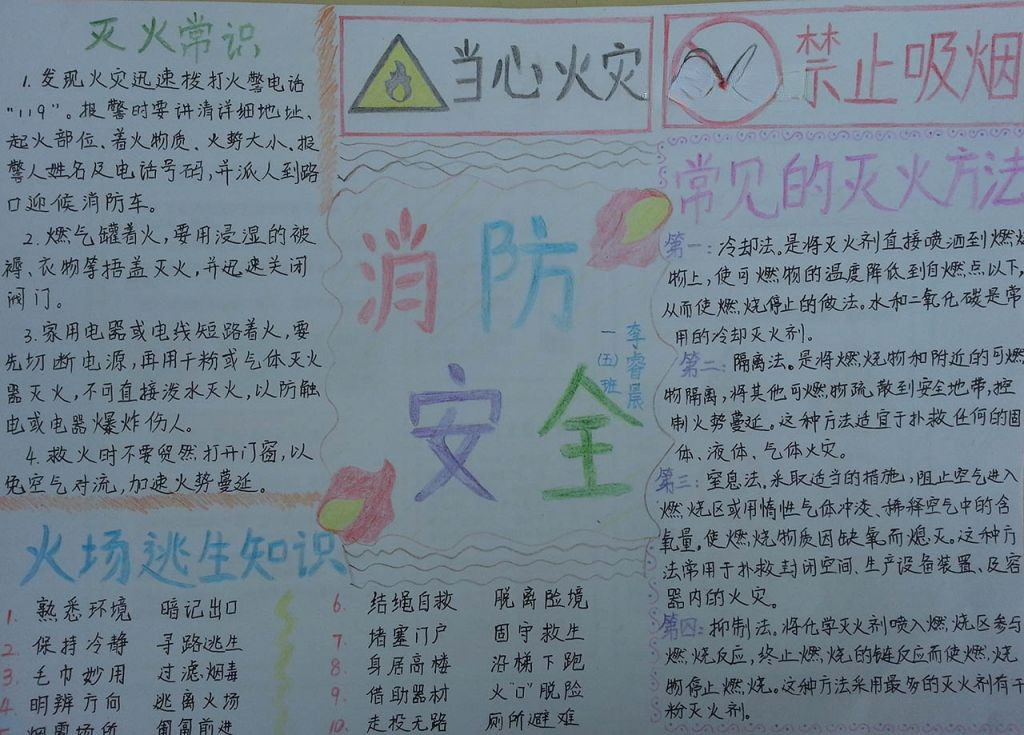 灭火常识
1.发现火灾迅速拨打火警电话
"119"。报警时要讲清详细地址、
起火部位、着火物质、火势大小、报
警人姓名及电话号码,并派人到路
口迎候消防车。
2.燃气罐着火,要用浸湿的被
褥、衣物等捂盖灭火,并迅速关闭
阀门。
3.家用电器或电线短路着火,要
先切断电源,再用干粉或气体灭火
器灭火,不可直接泼水灭火,以防触
电或电器爆炸伤人。
4.救火时不要贸然打开门窗,以
免空气对流,加速火势蔓延。
当心火灾
禁止吸烟
消防
安全
一(五)班
李睿晨
常见的灭火方法
第一:冷却法。是将灭火剂直接喷洒到燃烧
物上,使可燃物的温度降低到自燃点以下,
从而使燃烧停止的做法。水和二氧化碳是常
用的冷却灭火剂。
第二:隔离法。是将燃烧物和附近的可燃
物隔离,将其他可燃物疏散到安全地带,控
制火势蔓延。这种方法适宜于扑救任何的固
体、液体、气体火灾。
第三:窒息法。采取适当的措施,阻止空气进入
燃烧区或用惰性气体冲淡、稀释空气中的含
氧量,使燃烧物质因缺氧而熄灭。这种方
法常用于扑救封闭空间、生产设备装置、及容
器内的火灾。
第四:抑制法。将化学灭火剂喷入燃烧区参与
燃烧反应,终止燃烧的链反应而使燃烧
物停止燃烧。这种方法采用最多的灭火剂有干
粉灭火剂。
火场逃生知识
1. 熟悉环境 暗记出口
2. 保持冷静 寻路逃生
3. 毛巾妙用 过滤烟毒
4. 明辨方向 逃离火场
烟雾场所 匍匐前进
6. 结绳自救 脱离险境
7. 堵塞门户 固守救生
8. 身居高楼 沿梯下跑
9. 借助器材 火"口"脱险
10. 走投无路 厕所避难